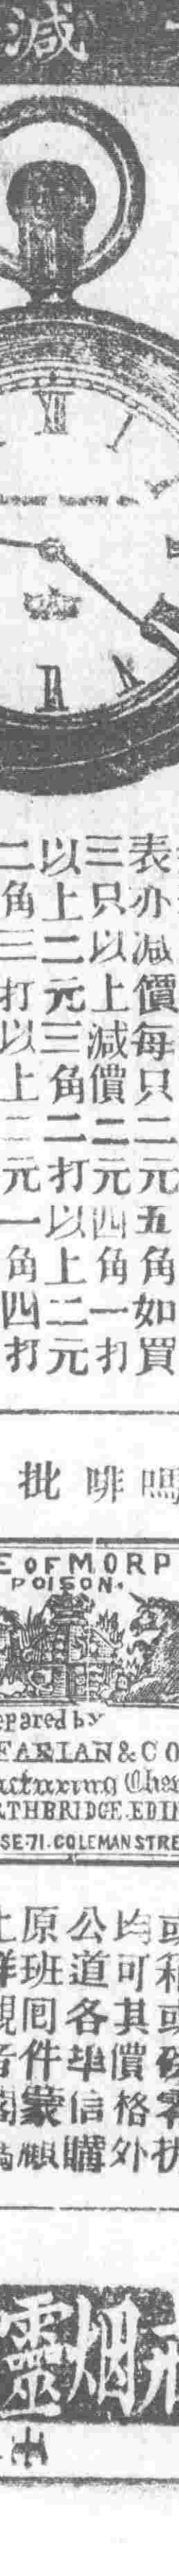 減
XII
I
表亦減價每只二元五角如買
三只以上減價二元四角一打
以上二元三角二打以上二元
二角三打以上二元一角四打
嗎啡批
E OF MORP
POISON.
epared by
FARLAN & CO
acturing Chem
RTHBRIDGE.EDIN
SE-71.COLEMAN STRE
均可其價格外
公道各埠信購
原班回件蒙顧
烟靈